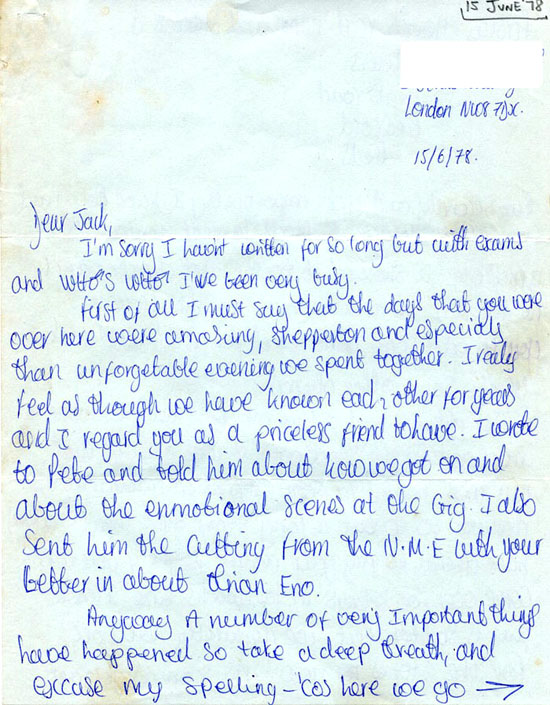 15 JUNE '78
London NW8 7DX.
15/6/78.
Dear Jack,
I'm sorry I havn't written for so long but with exams
and WHO'S WHO! I've been very busy.
First of all I must say that the days that you were
over here were amasing, Shepperton and especialy
than unforgetable evening we spent together. I realy
feel as though we have known each other for years
and I regard you as a priceless friend to have. I wrote
to Pete and told him about how we got on and
about the enmotional scenes at the Gig. I also
sent him the cutting from the N.M.E with your
letter in about Brian Eno.
Anyway A number of very Important things
have happened so take a deep breath, and
excuse my spelling - 'cos here we go →